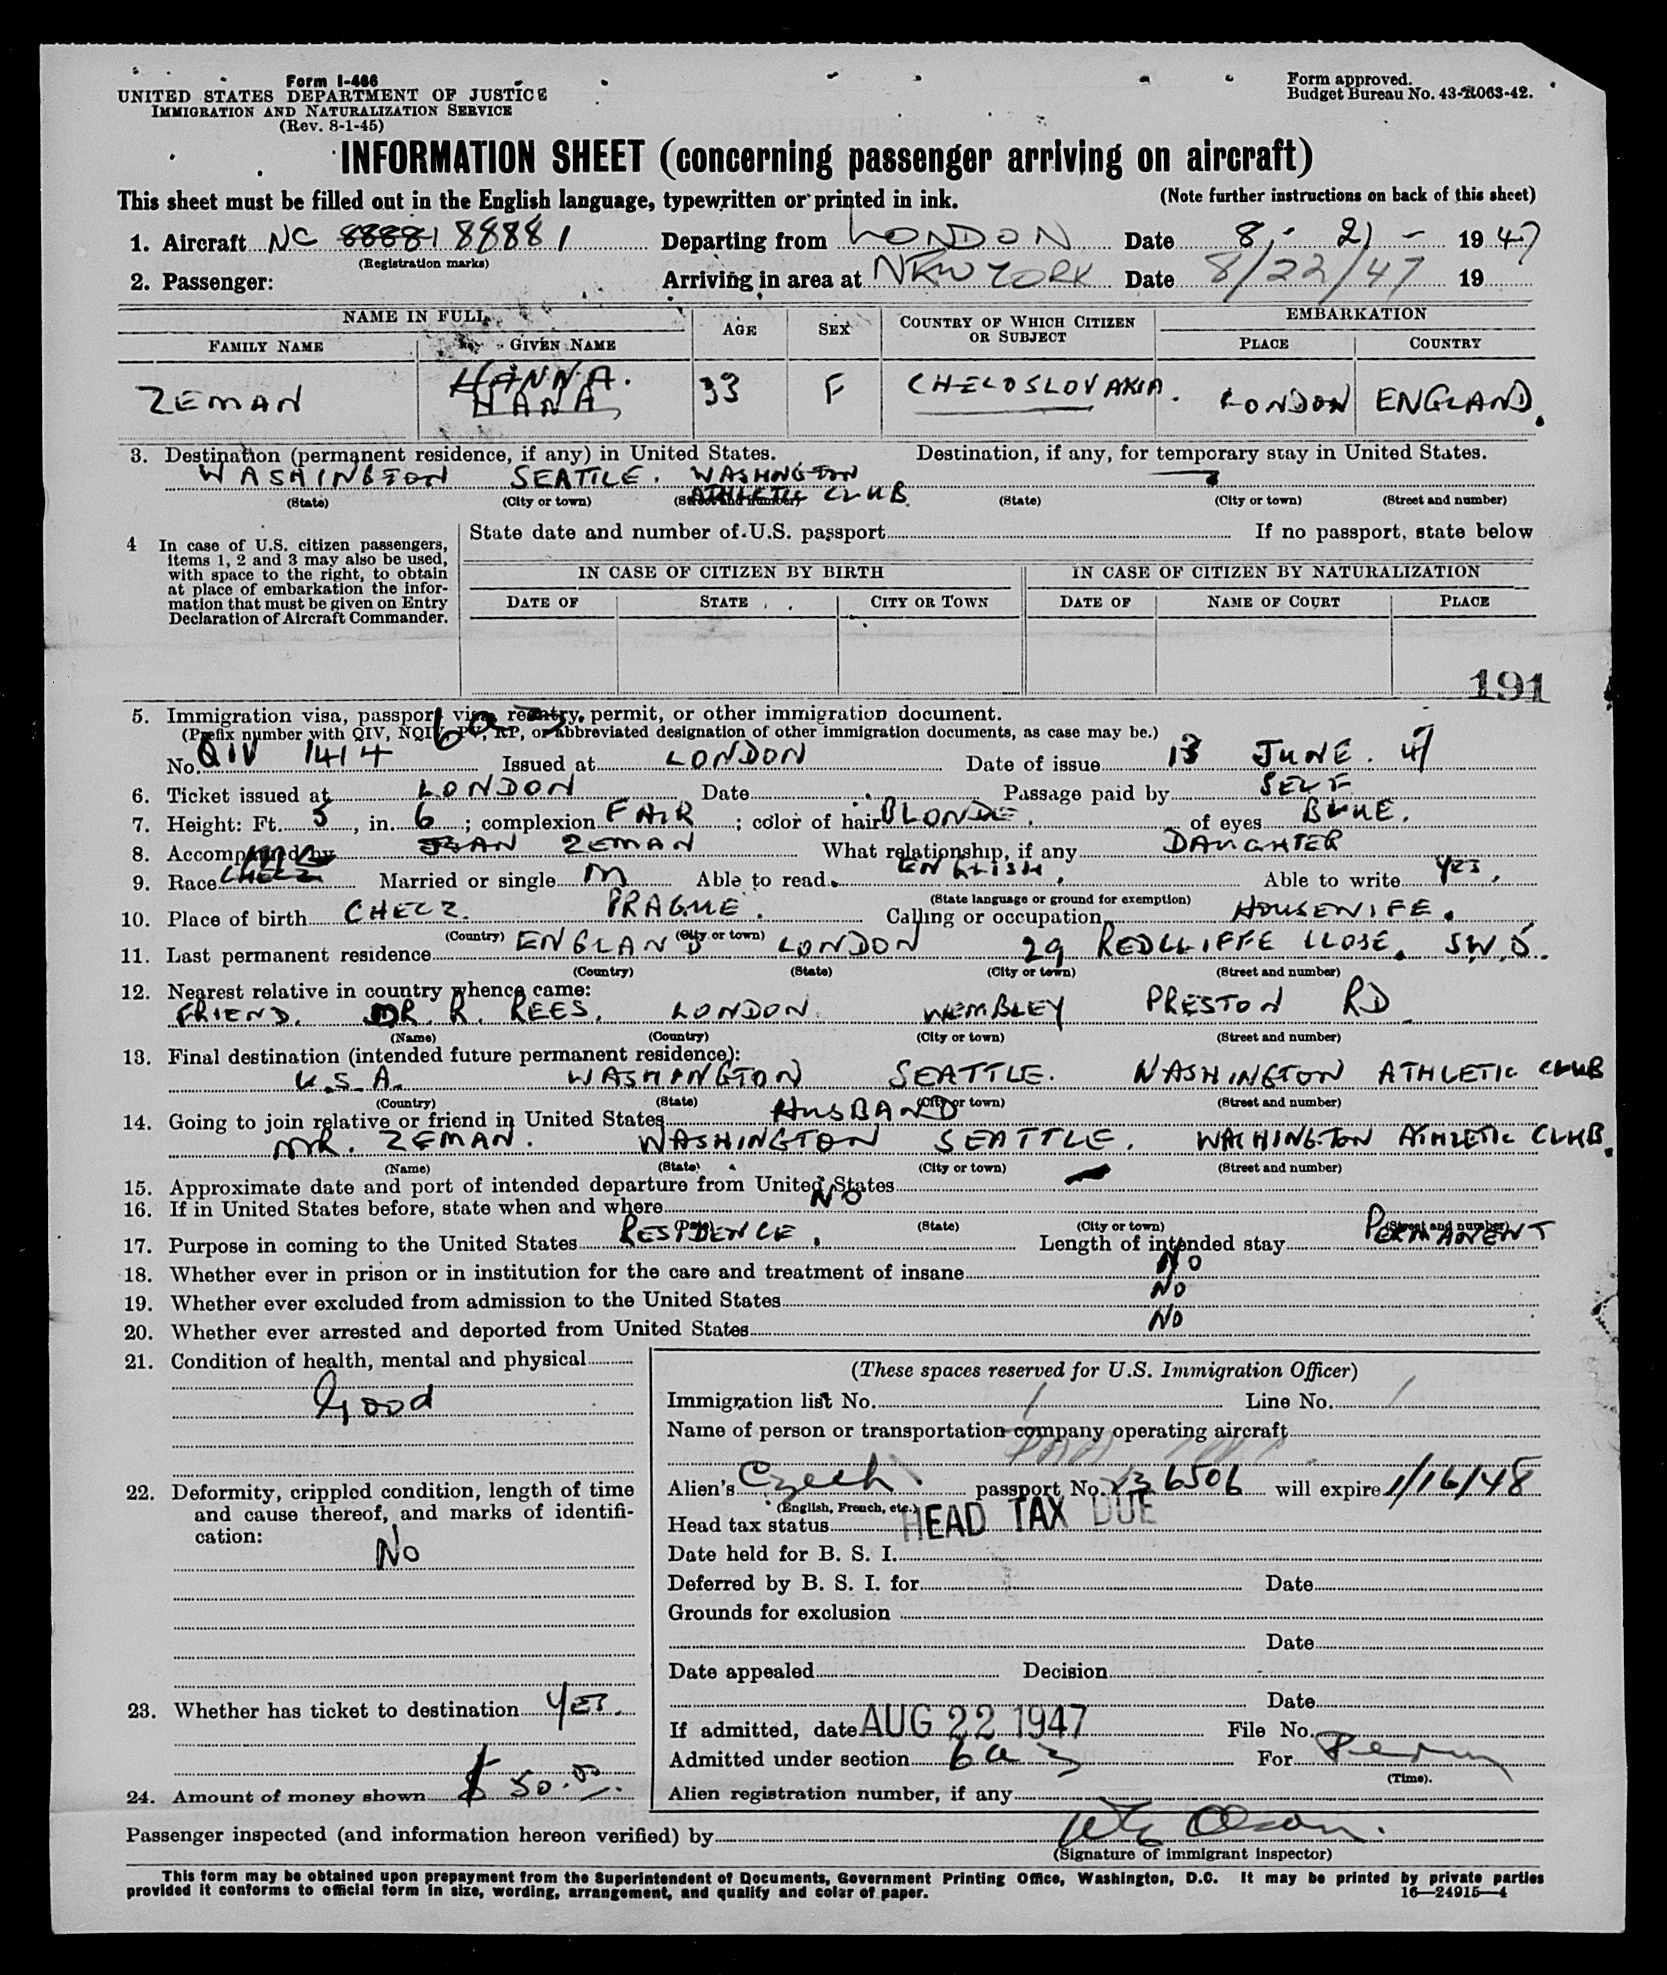 Form I-466
UNITED STATES DEPARTMENT OF JUSTICE
IMMIGRATION AND NATURALIZATION SERVICE
(Rev. 8-1-45)
Form approved.
Budget Bureau No. 43-R063-42.
INFORMATION SHEET (concerning passenger arriving on aircraft)
This sheet must be filled out in the English language, typewritten or printed in ink. (Note further instructions on back of this sheet)
1. Aircraft NC 88881 88881 Departing from LONDON Date 8 - 21 - 19 47
(Registration marks)
2. Passenger: Arriving in area at NEW YORK Date 8/22/47 19
NAME IN FULL AGE SEX COUNTRY OF WHICH CITIZEN OR SUBJECT EMBARKATION
FAMILY NAME GIVEN NAME PLACE COUNTRY
HANNA.
ZEMAN HANA 33 F CHECLOSLOVAKIA. LONDON ENGLAND.
3. Destination (permanent residence, if any) in United States. Destination, if any, for temporary stay in United States.
WASHINGTON SEATTLE. WASHNGTON
ATHLETIC CLUB
(State) (City or town) (Street and number) (State) (City or town) (Street and number)
4 In case of U.S. citizen passengers,
items 1, 2 and 3 may also be used,
with space to the right, to obtain
at place of embarkation the infor-
mation that must be given on Entry
Declaration of Aircraft Commander.
State date and number of U.S. passport If no passport, state below
IN CASE OF CITIZEN BY BIRTH IN CASE OF CITIZEN BY NATURALIZATION
DATE OF STATE CITY OR TOWN DATE OF NAME OF COURT PLACE
191
5. Immigration visa, passport visa, reentry permit, or other immigration document.
6a3
(Prefix number with QIV, NQIV, PV, RP, or abbreviated designation of other immigration documents, as case may be.)
No. QIV 1414 Issued at LONDON Date of issue 13 JUNE. 47
6. Ticket issued at LONDON Date Passage paid by SELF
7. Height: Ft. 5, in. 6; complexion FAIR; color of hair BLONDE. of eyes BLUE.
8. Accompanied by JOAN ZEMAN What relationship, if any DAUGHTER
9. Race CHECZ Married or single M Able to read ENGLISH. Able to write YES.
(State language or ground for exemption)
10. Place of birth CHECZ. PRAGUE. Calling or occupation HOUSEWIFE.
(Country) (City or town)
11. Last permanent residence ENGLAND LONDON 29 REDCLIFFE CLOSE. S.W.5.
(Country) (State) (City or town) (Street and number)
12. Nearest relative in country whence came:
FRIEND. DR. R. REES. LONDON WEMBLEY PRESTON RD
(Name) (Country) (City or town) (Street and number)
13. Final destination (intended future permanent residence):
U.S.A. WASHINGTON SEATTLE. WASHINGTON ATHLETIC CLUB
(Country) (State) (City or town) (Street and number)
14. Going to join relative or friend in United States HUSBAND
MR. ZEMAN. WASHINGTON SEATTLE. WASHINGTON ATHLETIC CLUB.
(Name) (State) (City or town) (Street and number)
15. Approximate date and port of intended departure from United States
16. If in United States before, state when and where NO
(State) (City or town) (Street and number)
17. Purpose in coming to the United States RESIDENCE. Length of intended stay PERMANENT
18. Whether ever in prison or in institution for the care and treatment of insane NO
19. Whether ever excluded from admission to the United States NO
20. Whether ever arrested and deported from United States NO
21. Condition of health, mental and physical
Good
22. Deformity, crippled condition, length of time
and cause thereof, and marks of identifi-
cation:
No
23. Whether has ticket to destination YES.
24. Amount of money shown $ 50.00
(These spaces reserved for U.S. Immigration Officer)
Immigration list No. 1 Line No. 1
Name of person or transportation company operating aircraft
Alien's Czech passport No. 236506 will expire 1/16/48
(English, French, etc.)
Head tax status HEAD TAX DUE
Date held for B. S. I.
Deferred by B. S. I. for Date
Grounds for exclusion
Date
Date appealed Decision
Date
If admitted, date AUG 22 1947 File No.
Admitted under section 6a3 For Perm
(Time).
Alien registration number, if any
Passenger inspected (and information hereon verified) by Olson.
(Signature of immigrant inspector)
This form may be obtained upon prepayment from the Superintendent of Documents, Government Printing Office, Washington, D.C. It may be printed by private parties
provided it conforms to official form in size, wording, arrangement, and quality and color of paper. 16—24915-4